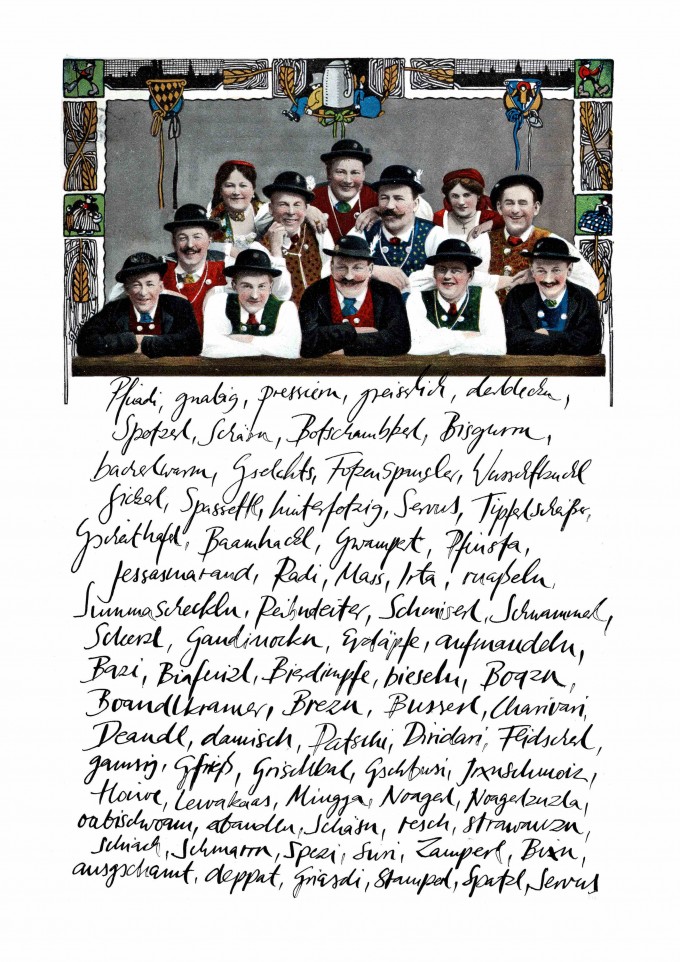 Pfiadi, gnabig, pressiern, greisslich, derblecken,
Spotzerl, Schäsn, Botschambberl, Bisgurrn,
bacherlwarm, Gselchts, Fotzenspangler, Wurschtkuchl
Gickerl, Spassettl, hinterfotzig, Servus, Tipferlscheißer,
Gscheithaferl, Baamhackl, Gwampert, Pfinsta,
Jessasmarand, Radi, Mass, Irta,
Summascheckln, Scheniserl, Schwammerl,
Scherzl, Gaudinockn, Erdäpfe, aufmandeln,
Bazi, Biafuizl, Bierdimpfe, bieseln, Boazn,
Boandlkramer, Brezn, Busserl, Charivari,
Deandl, damisch, Datschi, Diridari, Fleidscherl,
gamsig, Gfrieß, Grischbal, Gschbusi, Ixnschmoiz,
Hoiwe, Lewakaas, Mingga, Noagerl, Noagerlzuzla,
oabischwoam, obandln, Schäsn, resch, strawanzn,
schiach, Schmarrn, Spezi, Susi, Zamperl, Bixn,
ausgschamt, deppat, Griasdi, Stamperl, Spatzl, Servus